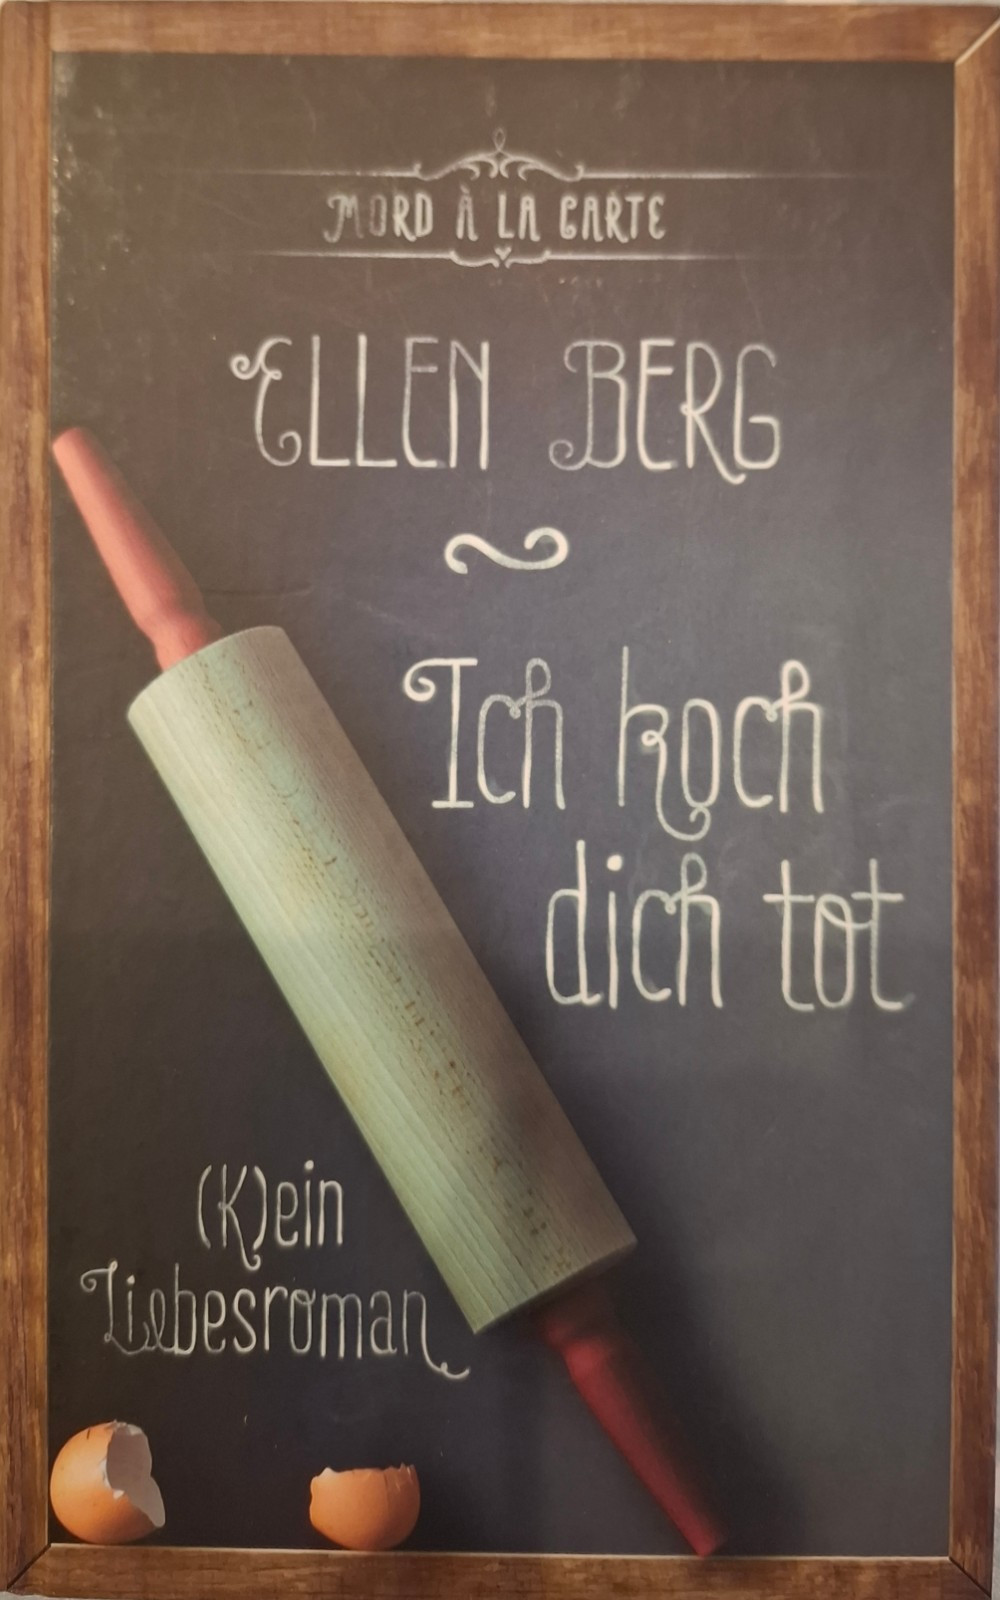 MORD À LA CARTE
ELLEN BERG
Ich koch
dich tot
(K)ein
Liebesroman